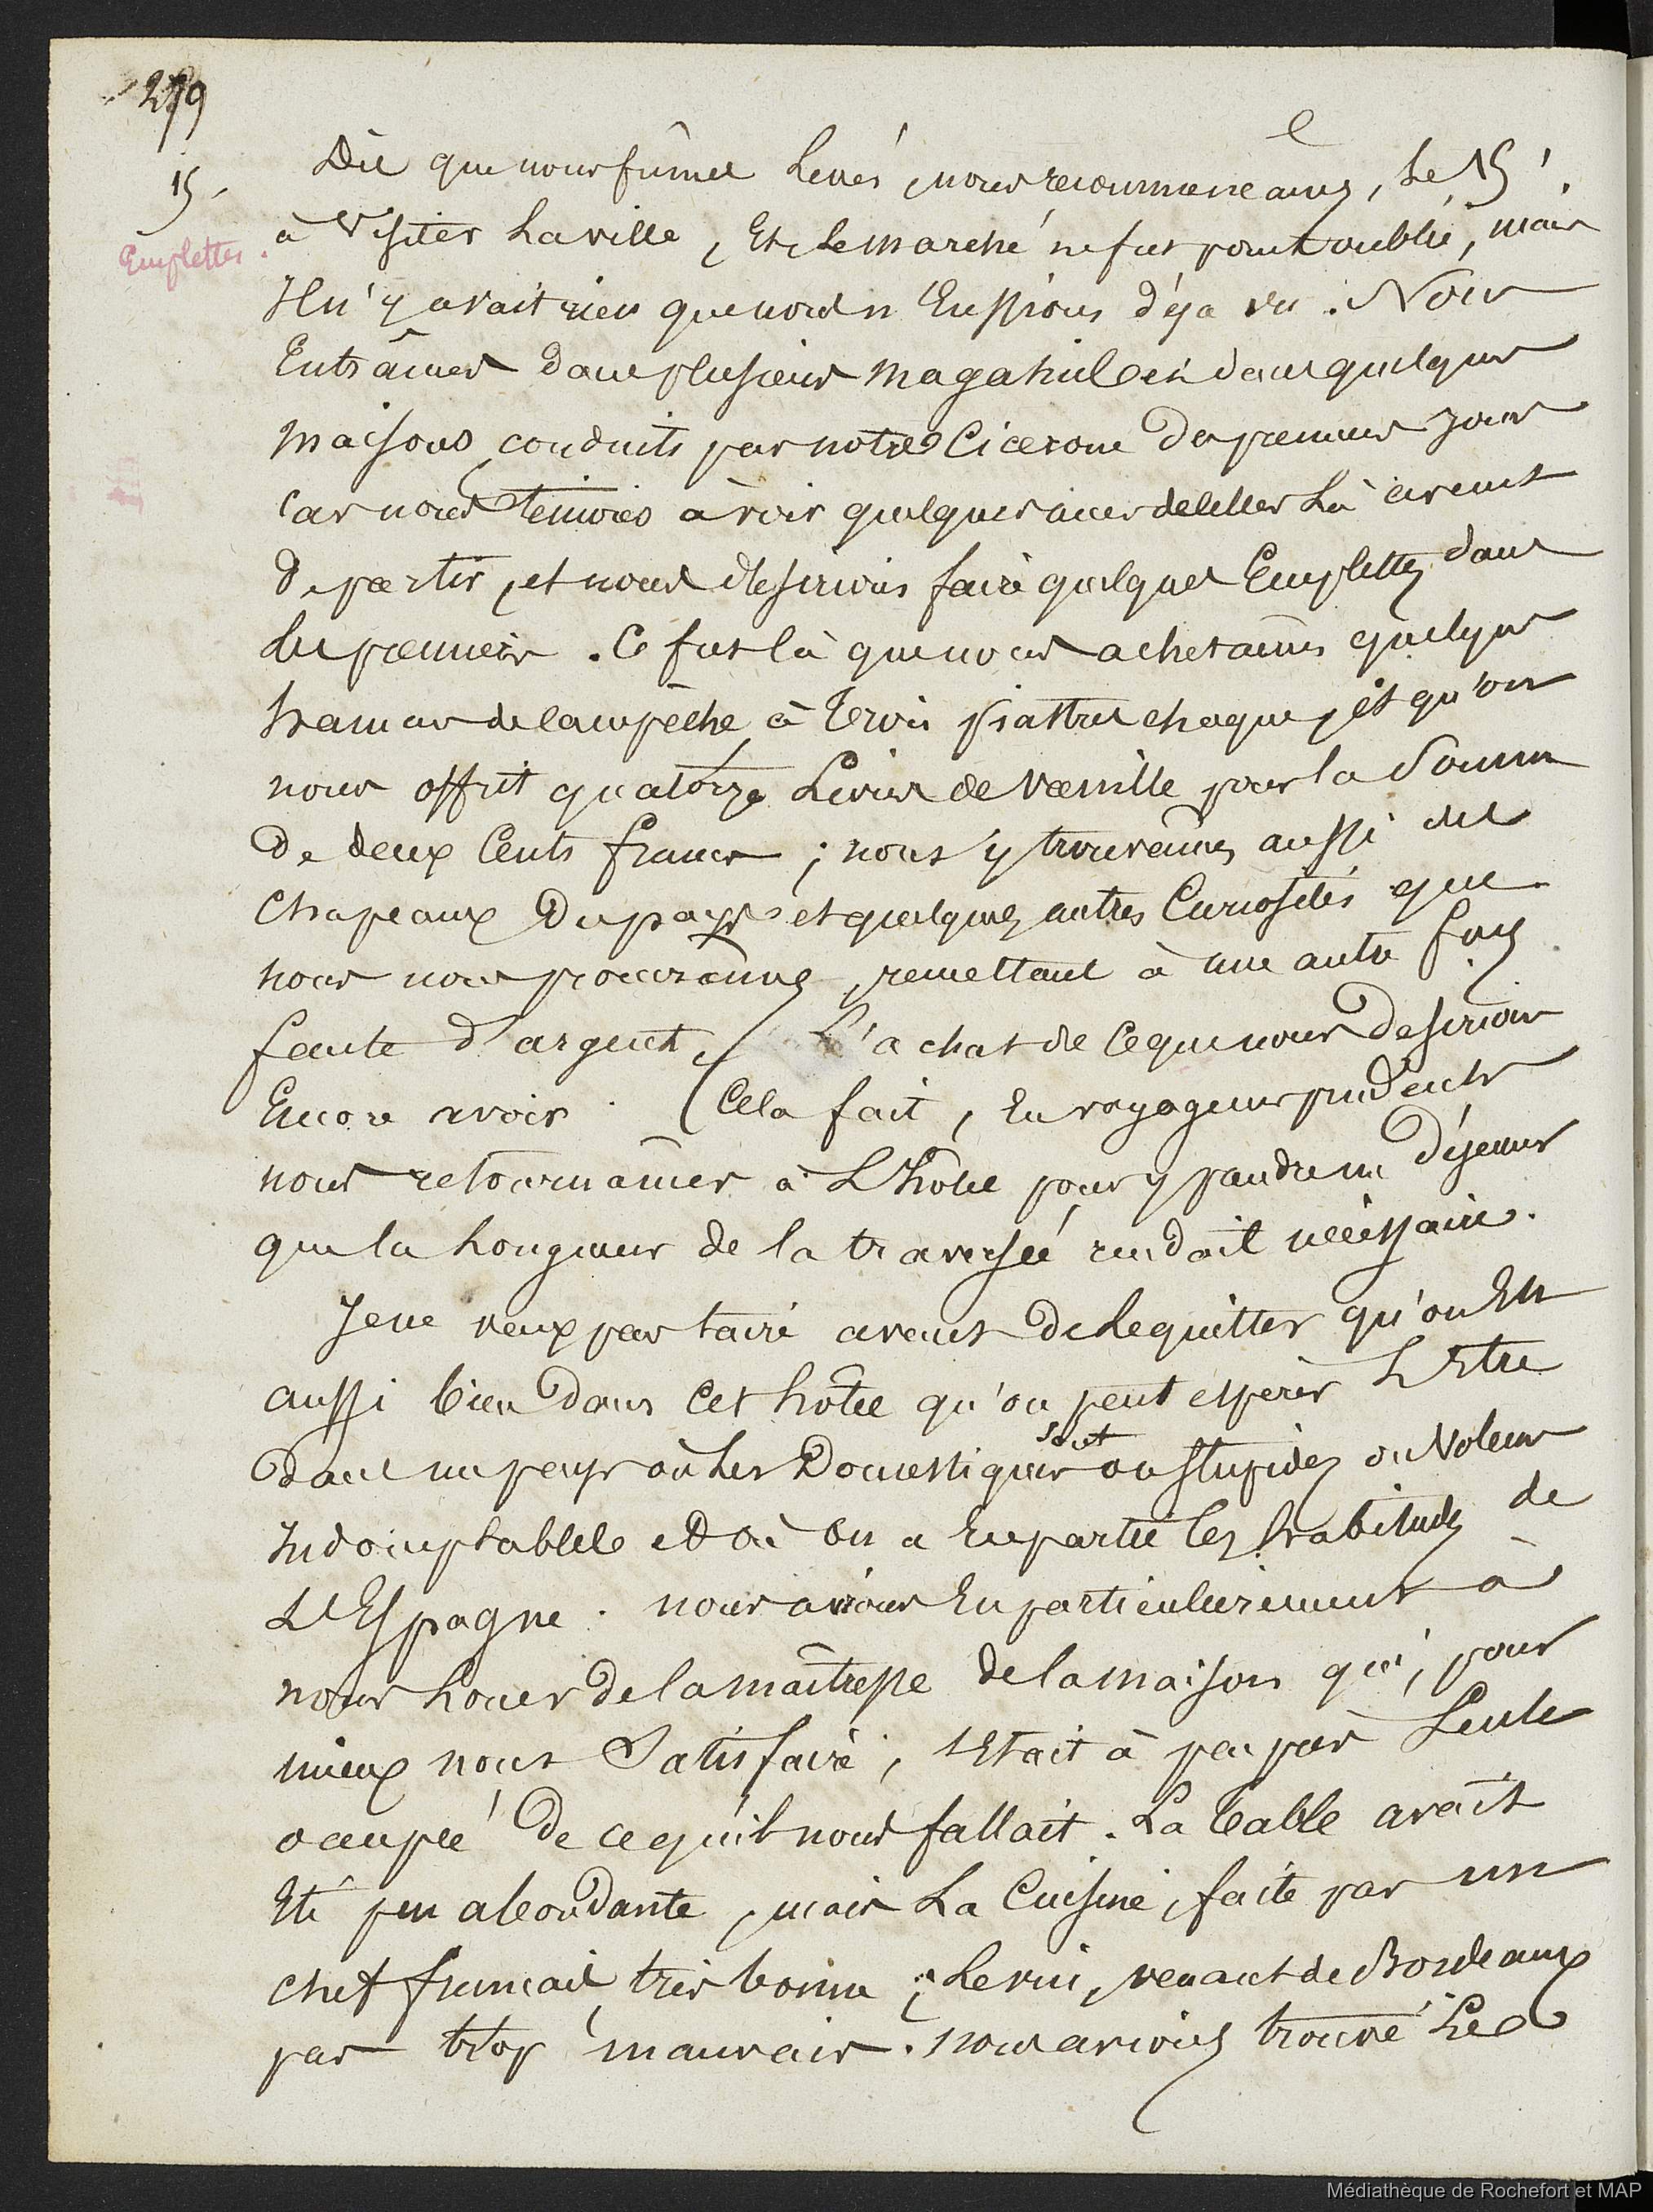 279
15.
Emplettes.
Dès que nous fûmes Levés, nous recommençâmes, Le 15,
à visiter La ville, Et Le marché ne fut point oublié, mais
Il n'y avait rien que nous n'Eussions déja vu. Nous
Entrâmes dans plusieurs magasins et dans quelques
maisons, conduits par notre Cicerone du premier jour
Car nous tenions à voir quelques unes de celles Là avant
de partir, et nous desirions faire quelques Emplettes dans
Les premiers. Ce fut là que nous achetâmes quelques
hamacs de campêche à trois piastres chaque, et qu'on
nous offrit quatorze Livres de vanille pour la Somme
De deux Cents francs ; nous y trouvâmes aussi des
Chapeaux du pays et quelques autres Curiosités que
nous nous procurâmes, remettant à une autre fois
faute d'argent, L'achat de ce que nous desirions
Encore avoir. Cela fait, En voyageurs prudents
nous retournâmes à L'hôtel pour y prendre un Déjeuner
que la Longueur de la traversée rendait nécessaire.
Je ne veux pas taire avant de Le quitter qu'on Est
aussi bien dans cet hôtel qu'on peut espérer L'Etre
Dans un pays où Les Domestiques sont ou stupides ou Voleurs
Indomptables et où On a En partie les habitudes de
L'Espagne. nous avions En particulièrement à
nous Louer de la maîtresse de la maison qui, pour
mieux nous Satisfaire, s'Etait à peu près Seule
occupée de ce qu'il nous fallait. La table avait
Eté peu abondante, mais La Cuisine, faite par un
chef français, très bonne ; Le vin, venant de Bordeaux
pas trop mauvais. nous avions trouvé Les
Médiathèque de Rochefort et MAP